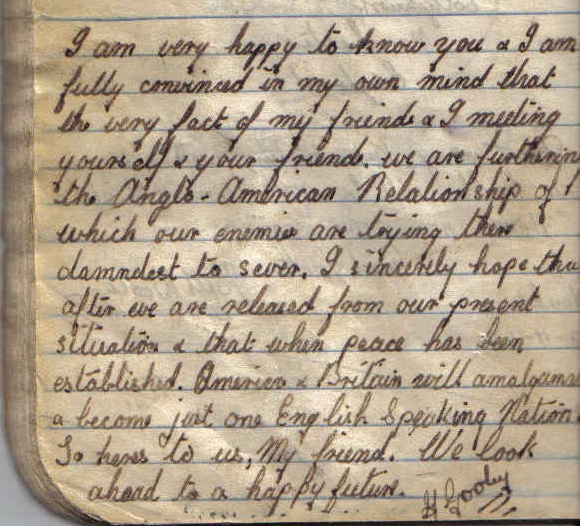 I am very happy to know you & I am
fully convinced in my own mind that
the very fact of my friends & I meeting
yourself & your friends, we are furthering
the Anglo-American Relationship of
which our enemies are trying there
damndest to sever. I sincerely hope tha
after we are released from our present
situation & that when peace has been
established. America & Britain will amalgama
& become just one English Speaking Nation.
So heres to us, My friend. We look
ahead to a happy future.